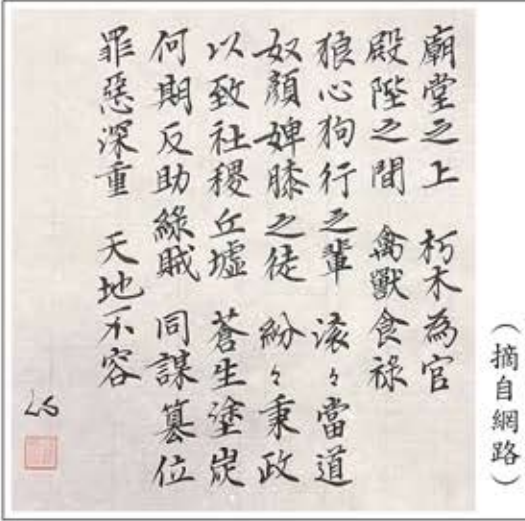 廟堂之上 朽木為官
殿陛之間 禽獸食祿
狼心狗行之輩 滾々當道
奴顏婢膝之徒 紛々秉政
以致社稷丘墟 蒼生塗炭
何期反助綠賊 同謀篡位
罪惡深重 天地不容
（摘自網路）